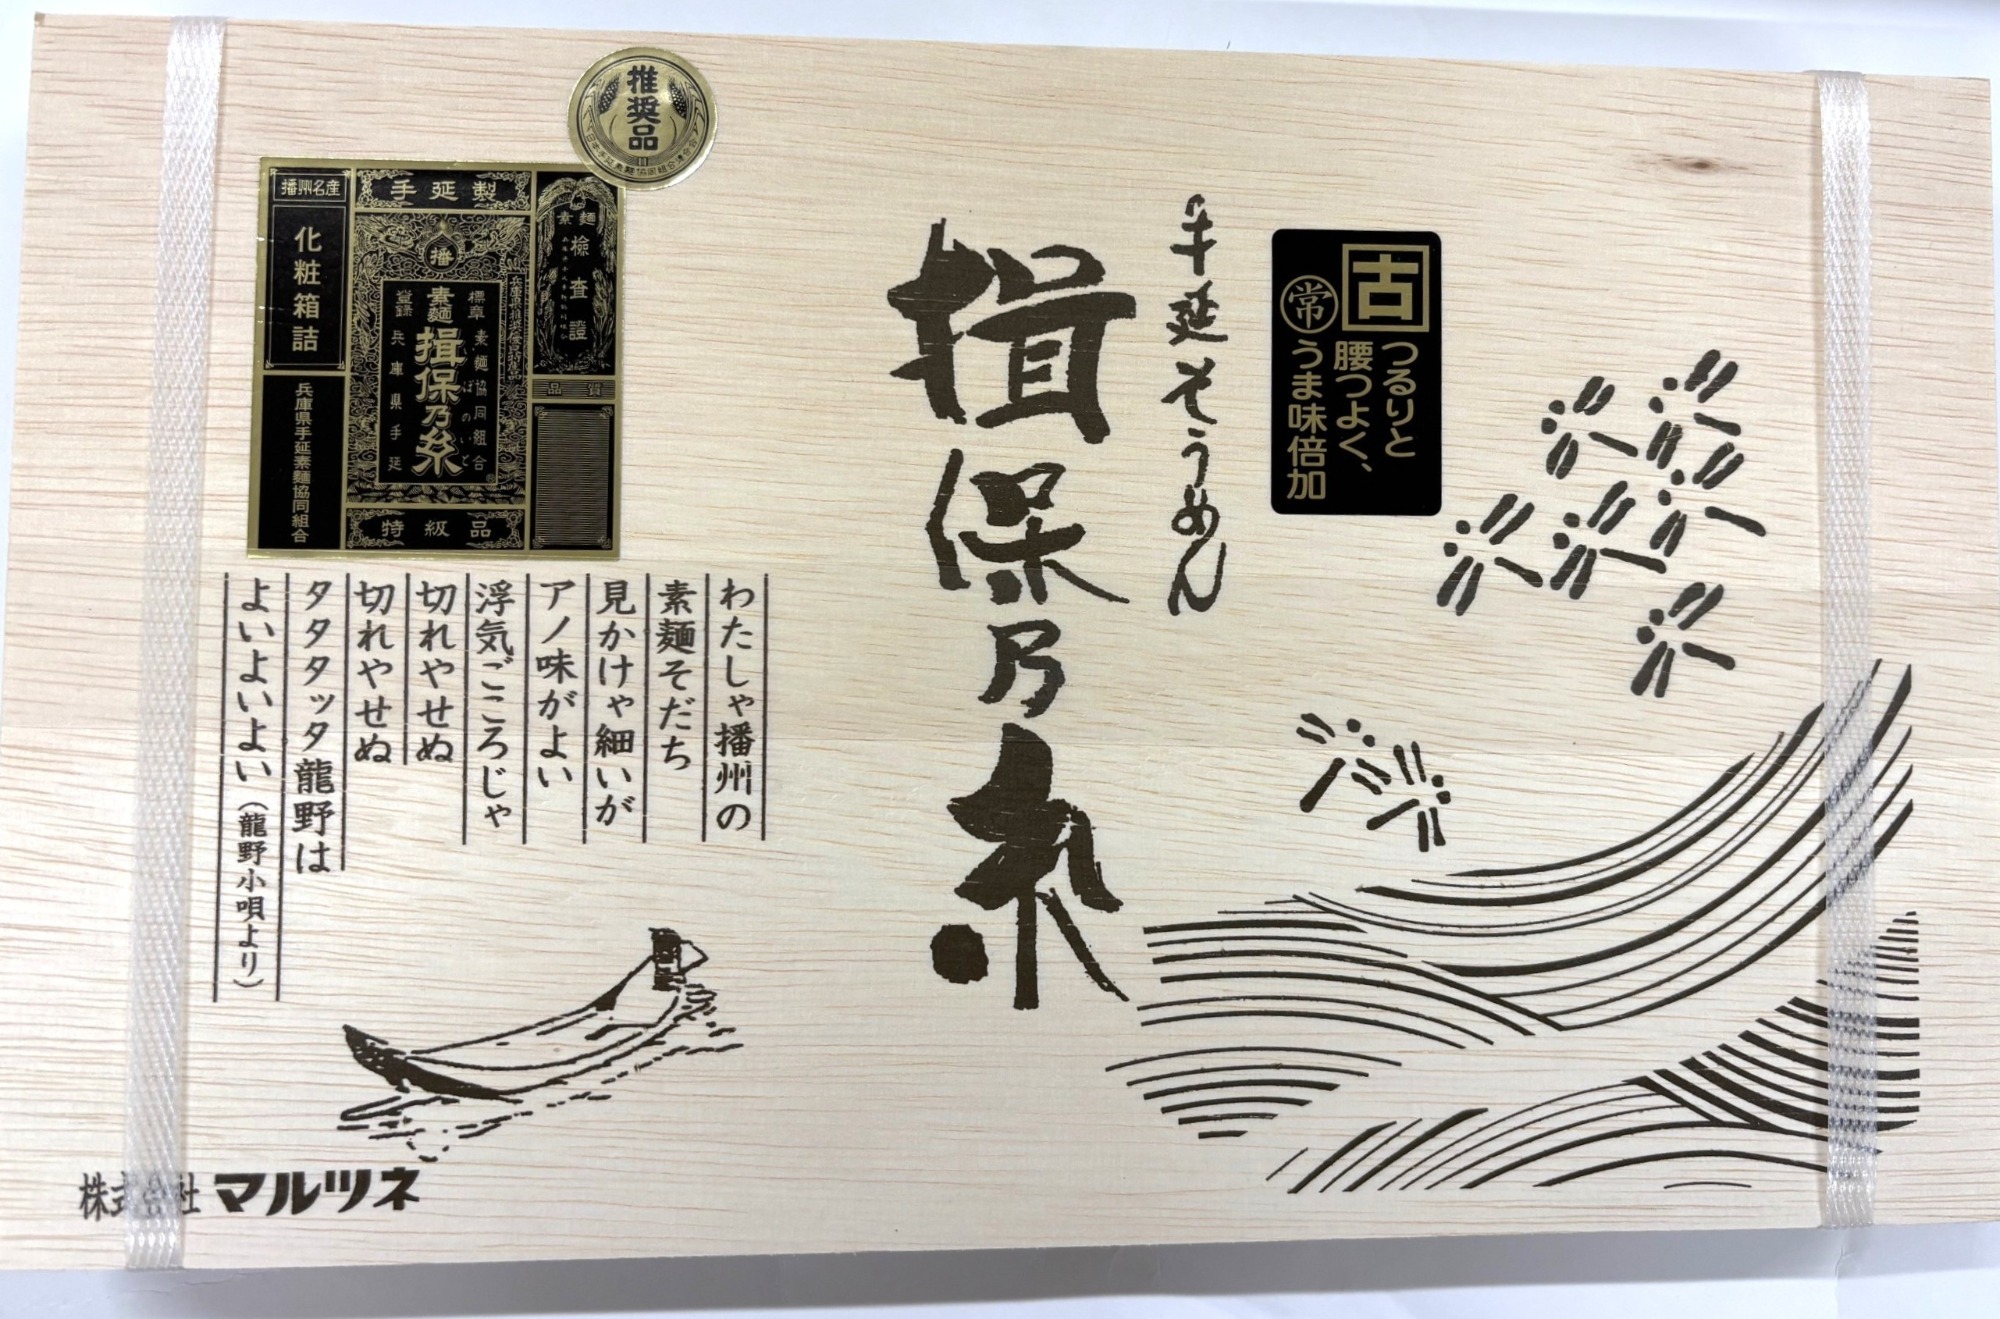 推奨品
日本手延素麺協同組合連合会
古
常
つるりと
腰つよく、
うま味倍加
手延そうめん
揖保乃糸
播州名産
手延製
化粧箱詰
兵庫県手延素麺協同組合
播
素麺
揖保乃糸
いぼのいと
兵庫県手延
素麺協同組合
兵庫県推奨優良特産品
素麺
検査證
品質
特級品
わたしゃ播州の
素麺そだち
見かけゃ細いが
アノ味がよい
浮気ごころじゃ
切れやせぬ
切れやせぬ
タタタッタ龍野は
よいよいよい(龍野小唄より)
株式会社 マルツネ